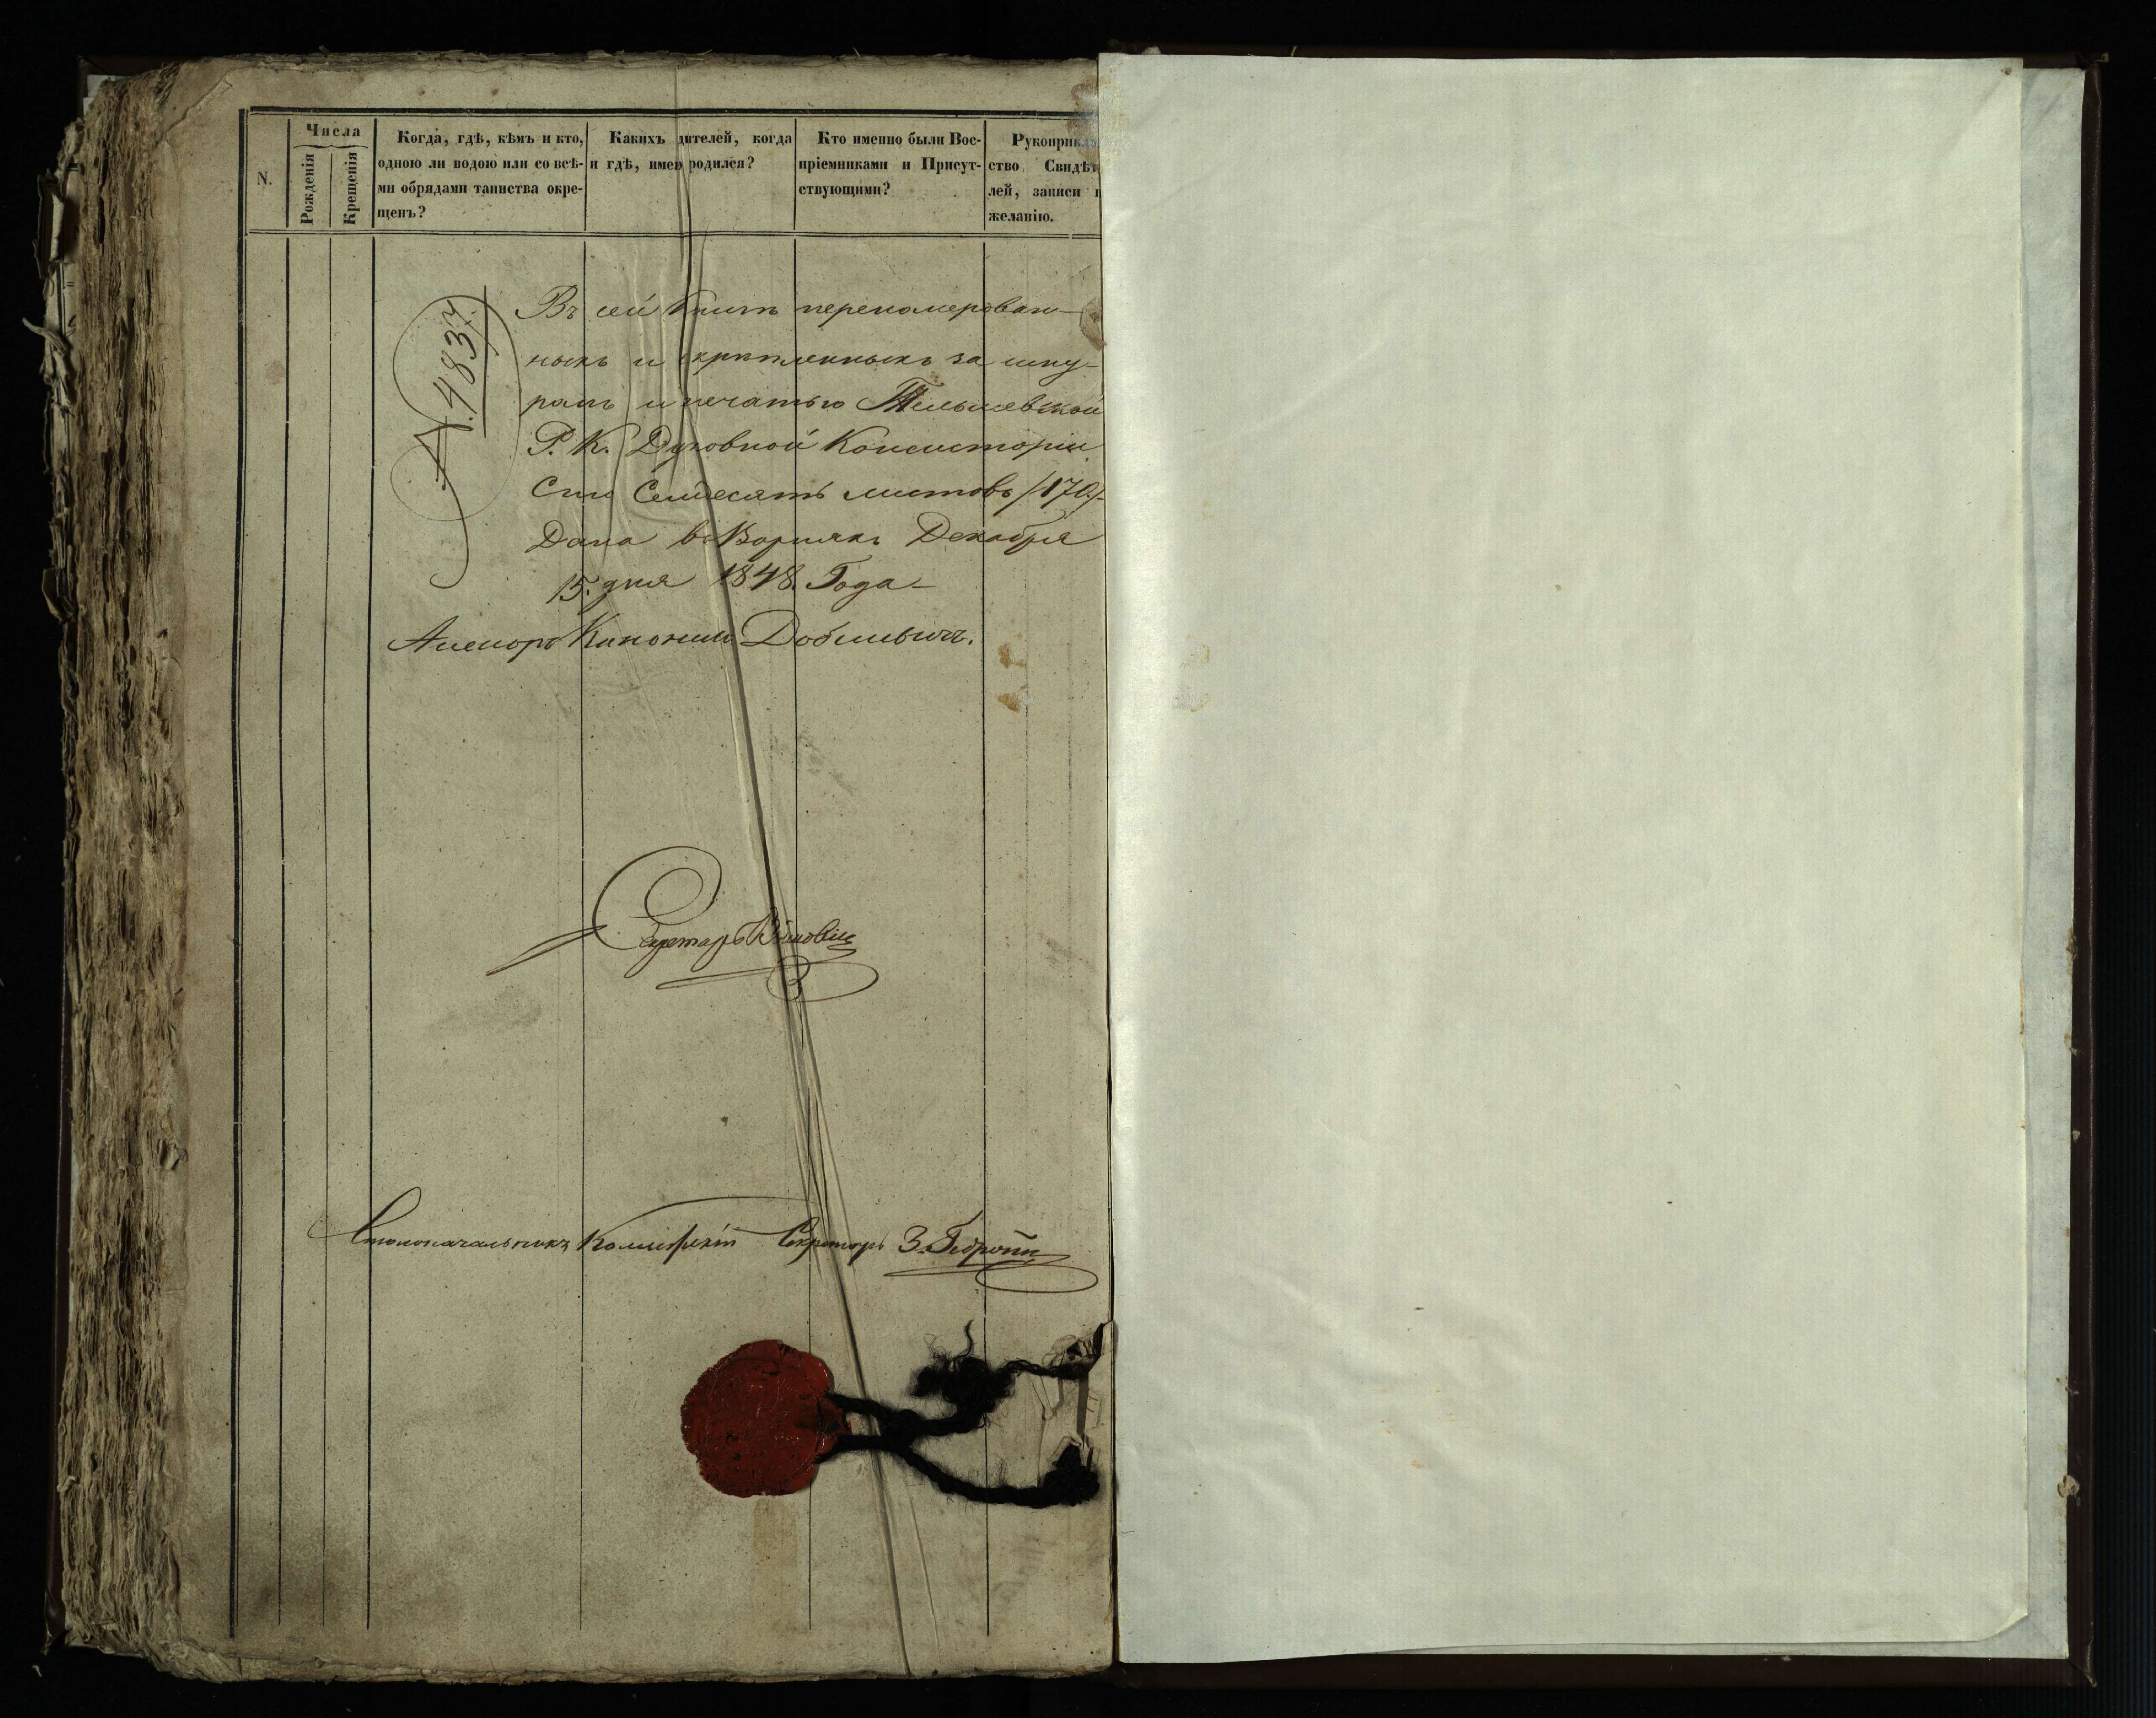 N.
Числа
Рожденія
Крещенія
Когда, гдѣ, кѣмъ и кто,
одною ли водою или со всѣ-
ми обрядами таинства окре-
щенъ?
Какихъ дителей, когда
и гдѣ, имен родился?
Кто именно были Вос-
пріемниками и Присут-
ствующими?
Рукоприкла
ство Свидѣт
лей, записи п
желанію.
4837.
Въ сей Книгѣ перенамерован-
ныхъ и скрѣпленныхъ за шну-
ромъ и печатью Тельшевской
Р. К. Духовной Консисторіи
Сто Семдесятъ листовъ /170./
Дана въ Ворняхъ Декабря
15. дня 1848. Года
Асесоръ Каноникъ Добшевичъ.
Секретарь
Столоначальникъ Коллежскій Секретарь З.